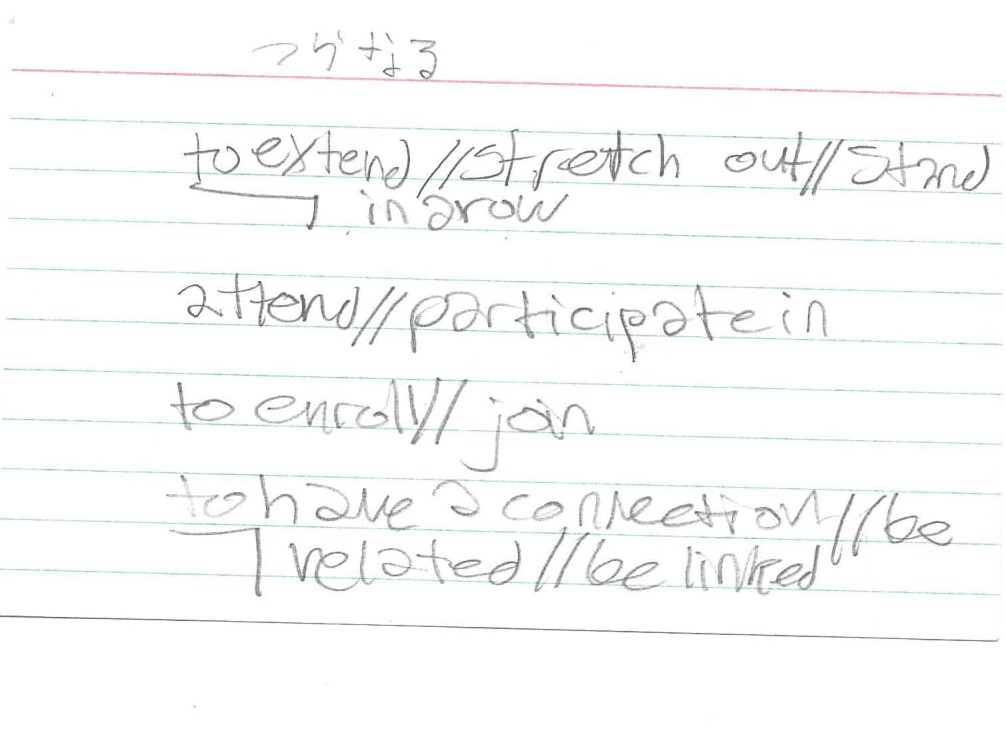 つらなる
to extend//stretch out//stand
in a row
attend//participate in
to enroll//join
to have a connection//be
related//be linked